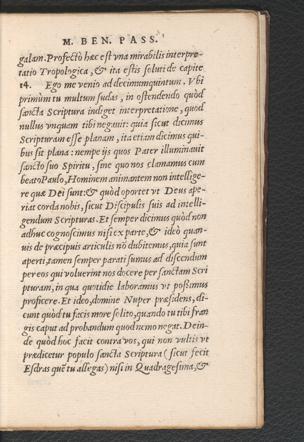 M. BEN. PASS.
galam. Profectò hæc est vna mirabilis interpre-
tatio Tropologica, & ita estis soluti de capite
14. Ego me venio ad decimumquintum. Vbi
primùm tu multum sudas, in ostendendo quòd
sancta Scriptura indiget interpretatione, quod
nullus vnquam tibi negauit: quia sicut dicimus
Scripturam esse planam, ita etiam dicimus qui-
bus sit plana: nempe ijs quos Pater illuminauit
sancto suo Spiritu, sine quo nos clamamus cum
beato Paulo, Hominem animantem non intellige-
re quæ Dei sunt: & quòd oportet vt Deus ape-
riat corda nobis, sicut Discipulis suis ad intelli-
gendum Scripturas. Et semper dicimus quòd non
adhuc cognoscimus nisi ex parte, & ideò quan-
uis de præcipuis articulis nõ dubitemus, quia sunt
aperti, tamen semper parati sumus ad discendum
per eos qui voluerint nos docere per sanctam Scri
pturam, in qua quotidie laboramus vt possimus
proficere. Et ideo, domine Nuper præsidens, di-
cunt quòd tu facis more solito, quando tu tibi fran
gis caput ad probandum quod nemo negat. Dein-
de quòd hoc facit contra vos, qui non vultis vt
prædicetur populo sancta Scriptura (sicut fecit
Esdras quẽ tu allegas) nisi in Quadragesima, &